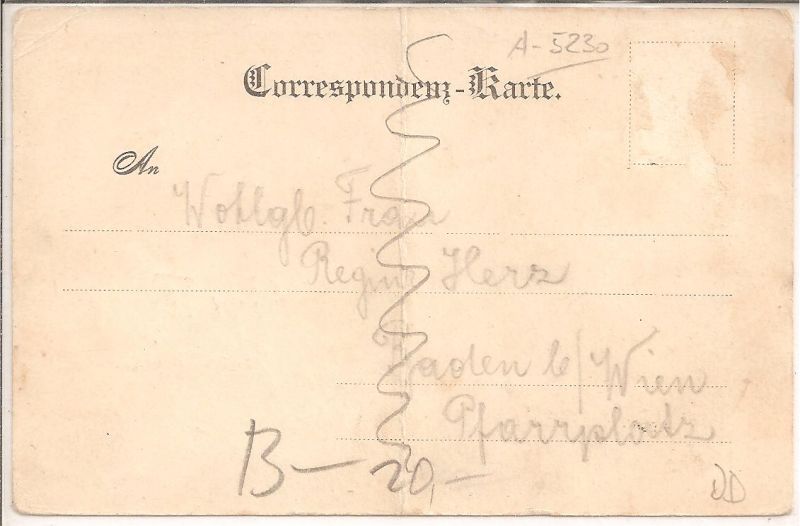 A-5230
Correspondenz-Karte.
An
Wohlgb. Frau
Regine Herz
Baden b/Wien
Pfarrplatz
B- 20,-
DD